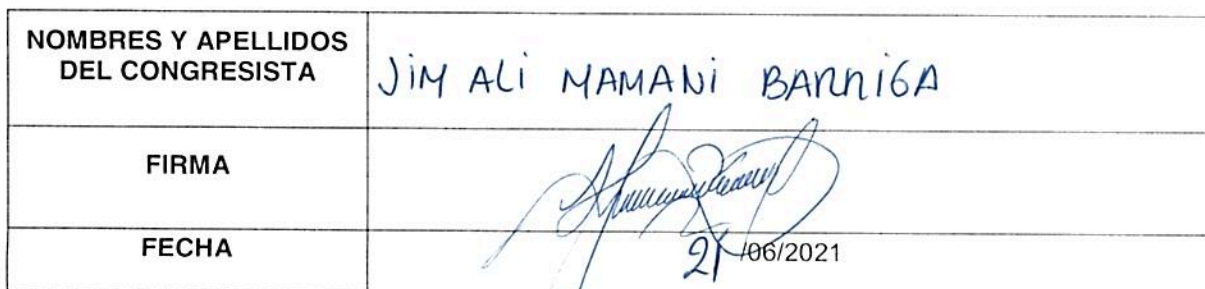 NOMBRES Y APELLIDOS
DEL CONGRESISTA
JiM ALi MAMANi BARRiGA
FIRMA
FECHA
21/06/2021